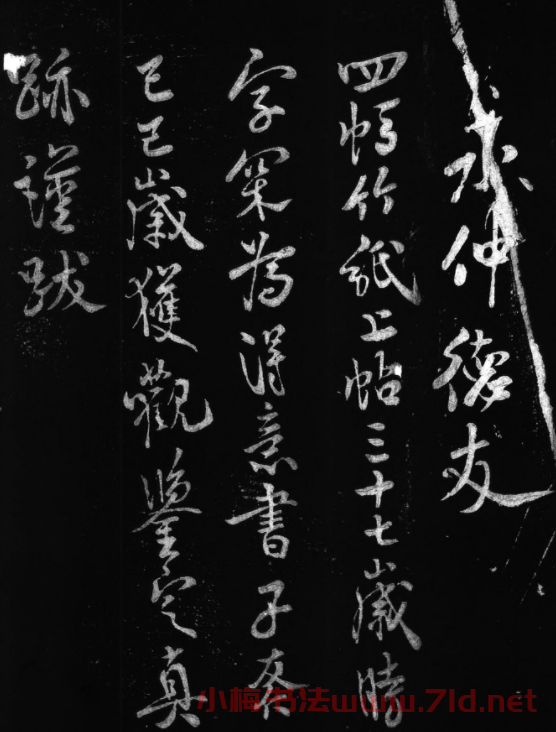 仲德友
四竹紙上帖三十七歲時
字罙為得意書子
己巳歲獲觀鑒定真
跡謹跋
小梅书法www.7ld.net